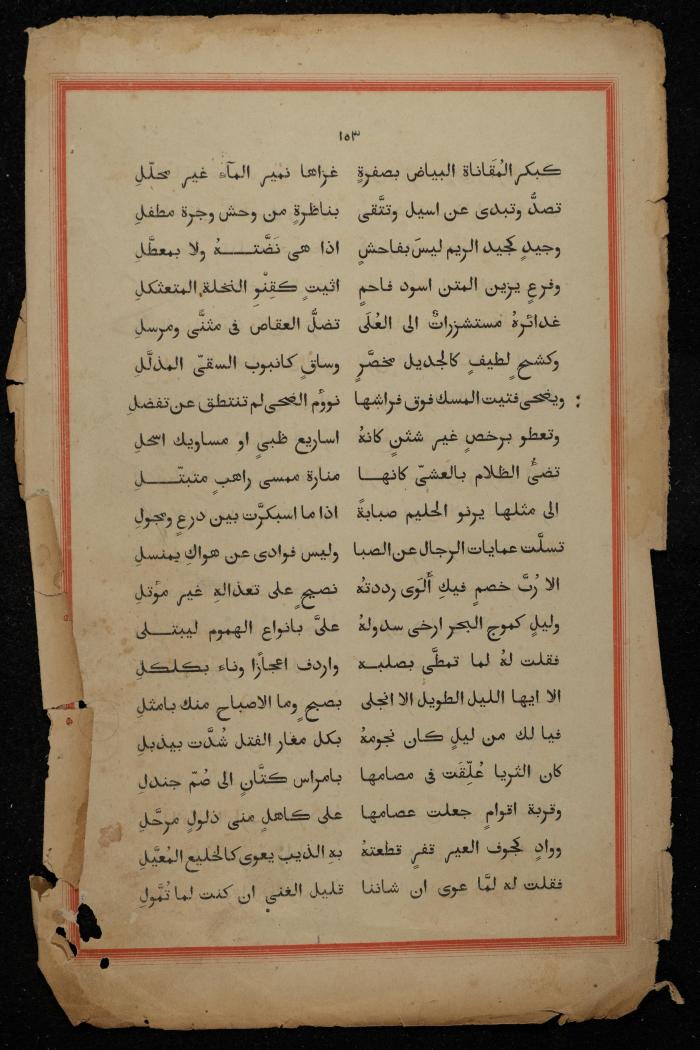 ١٥٣
كبكر المُقَاناة البياض بصفرةٍ غزاها نمير المآء غير محلّلِ
تصدُّ وتبدى عن اسيل وتتَّقى بناظرةٍ من وحش وجرة مطفلِ
وجيدٍ كجيد الريم ليسَ بفاحشٍ اذا هى نَضَّتـــهُ ولا بمعطَّلِ
وفرعٍ يزين المتن اسود فاحمٍ اثيتٍ كقِنْوِ النخلة المتعثكلِ
غدائرهُ مستشزراتٌ الى العُلَى تضلُّ العقاص فى مثنَّى ومرسلِ
وكشحٍ لطيفٍ كالجديل مخصَّرٍ وساقٍ كانبوب السقىّ المذلَّلِ
: ويضحى فتيت المسك فوق فراشها نووُم الضحى لم تنتطق عن تفضلِ
وتعطو برخصٍ غير شثنٍ كانهُ اساريع ظبىٍ او مساويك اسحلِ
تضىُّ الظلام بالعشىّ كانهـا منارة ممسى راهبٍ متبتّـــلِ
الى مثلها يرنو الحليم صبابةً اذا ما اسبكرَّت بين درعٍ ومجولِ
تسلَّت عمايات الرجال عن الصبا وليس فوادى عن هواكِ بمنسلِ
الا رُبَّ خصمٍ فيكِ أَلوَى رددتهُ نصيحٍ على تعذالهِ غير مؤتلِ
وليلٍ كموج البحر ارخى سدولهُ علىَّ بانواع الهموم ليبتـــلى
فقلت لهُ لما تمطَّى بصلبـه واردف اعجازًا وناء بكلكلِ
الا ايها الليل الطويل الا انجلى بصبحٍ وما الاصباح منك بامثلِ
فيا لك من ليلٍ كان نجومهُ بكل مغار الفتل شُدَّت بيذبلِ
كان الثريا عُلِّقَت فى مصامها بامراس كتَّانٍ الى صُمّ جندلِ
وقربة اقوامٍ جعلت عصامها على كاهلٍ منى ذلولٍ مرحَّلِ
ووادٍ كجوف العير قفرٍ قطعتهُ بهِ الذيب يعوى كالخليع المُعيَّلِ
فقلت له لمَّا عوى ان شاننا قليل الغنى ان كنت لما تُمَّولِ